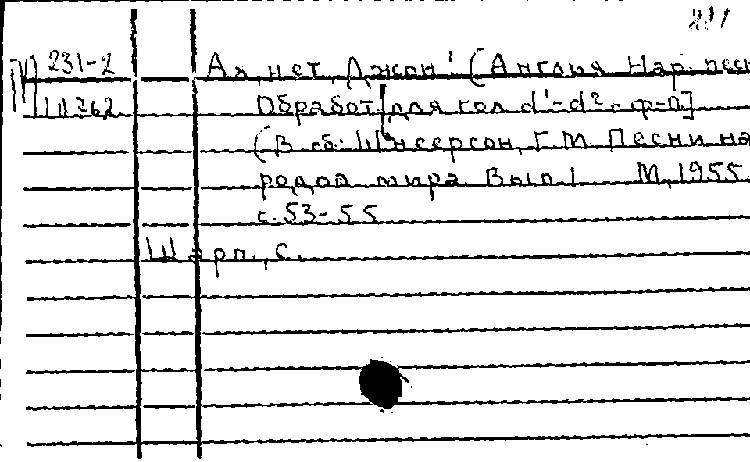 231
231-2 Ах, нет, Джон! (Англия Нар. песн
11762 Обработ. для гол d'-d² с ф-п.]
(В сб: Шнеерсон, Г.М. Песни на
родов мира Вып. 1 М, 1955
с. 53-55
Шарп, С.